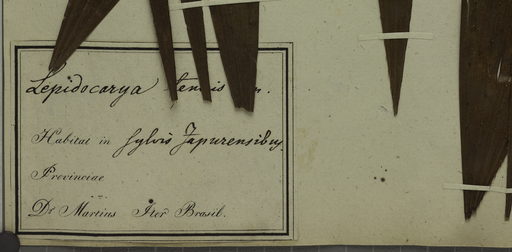 Lepidocarya tenuis m.
Habitat in sylvis Japurensibus,
Provinciae
Dr Martius Iter Brasil.